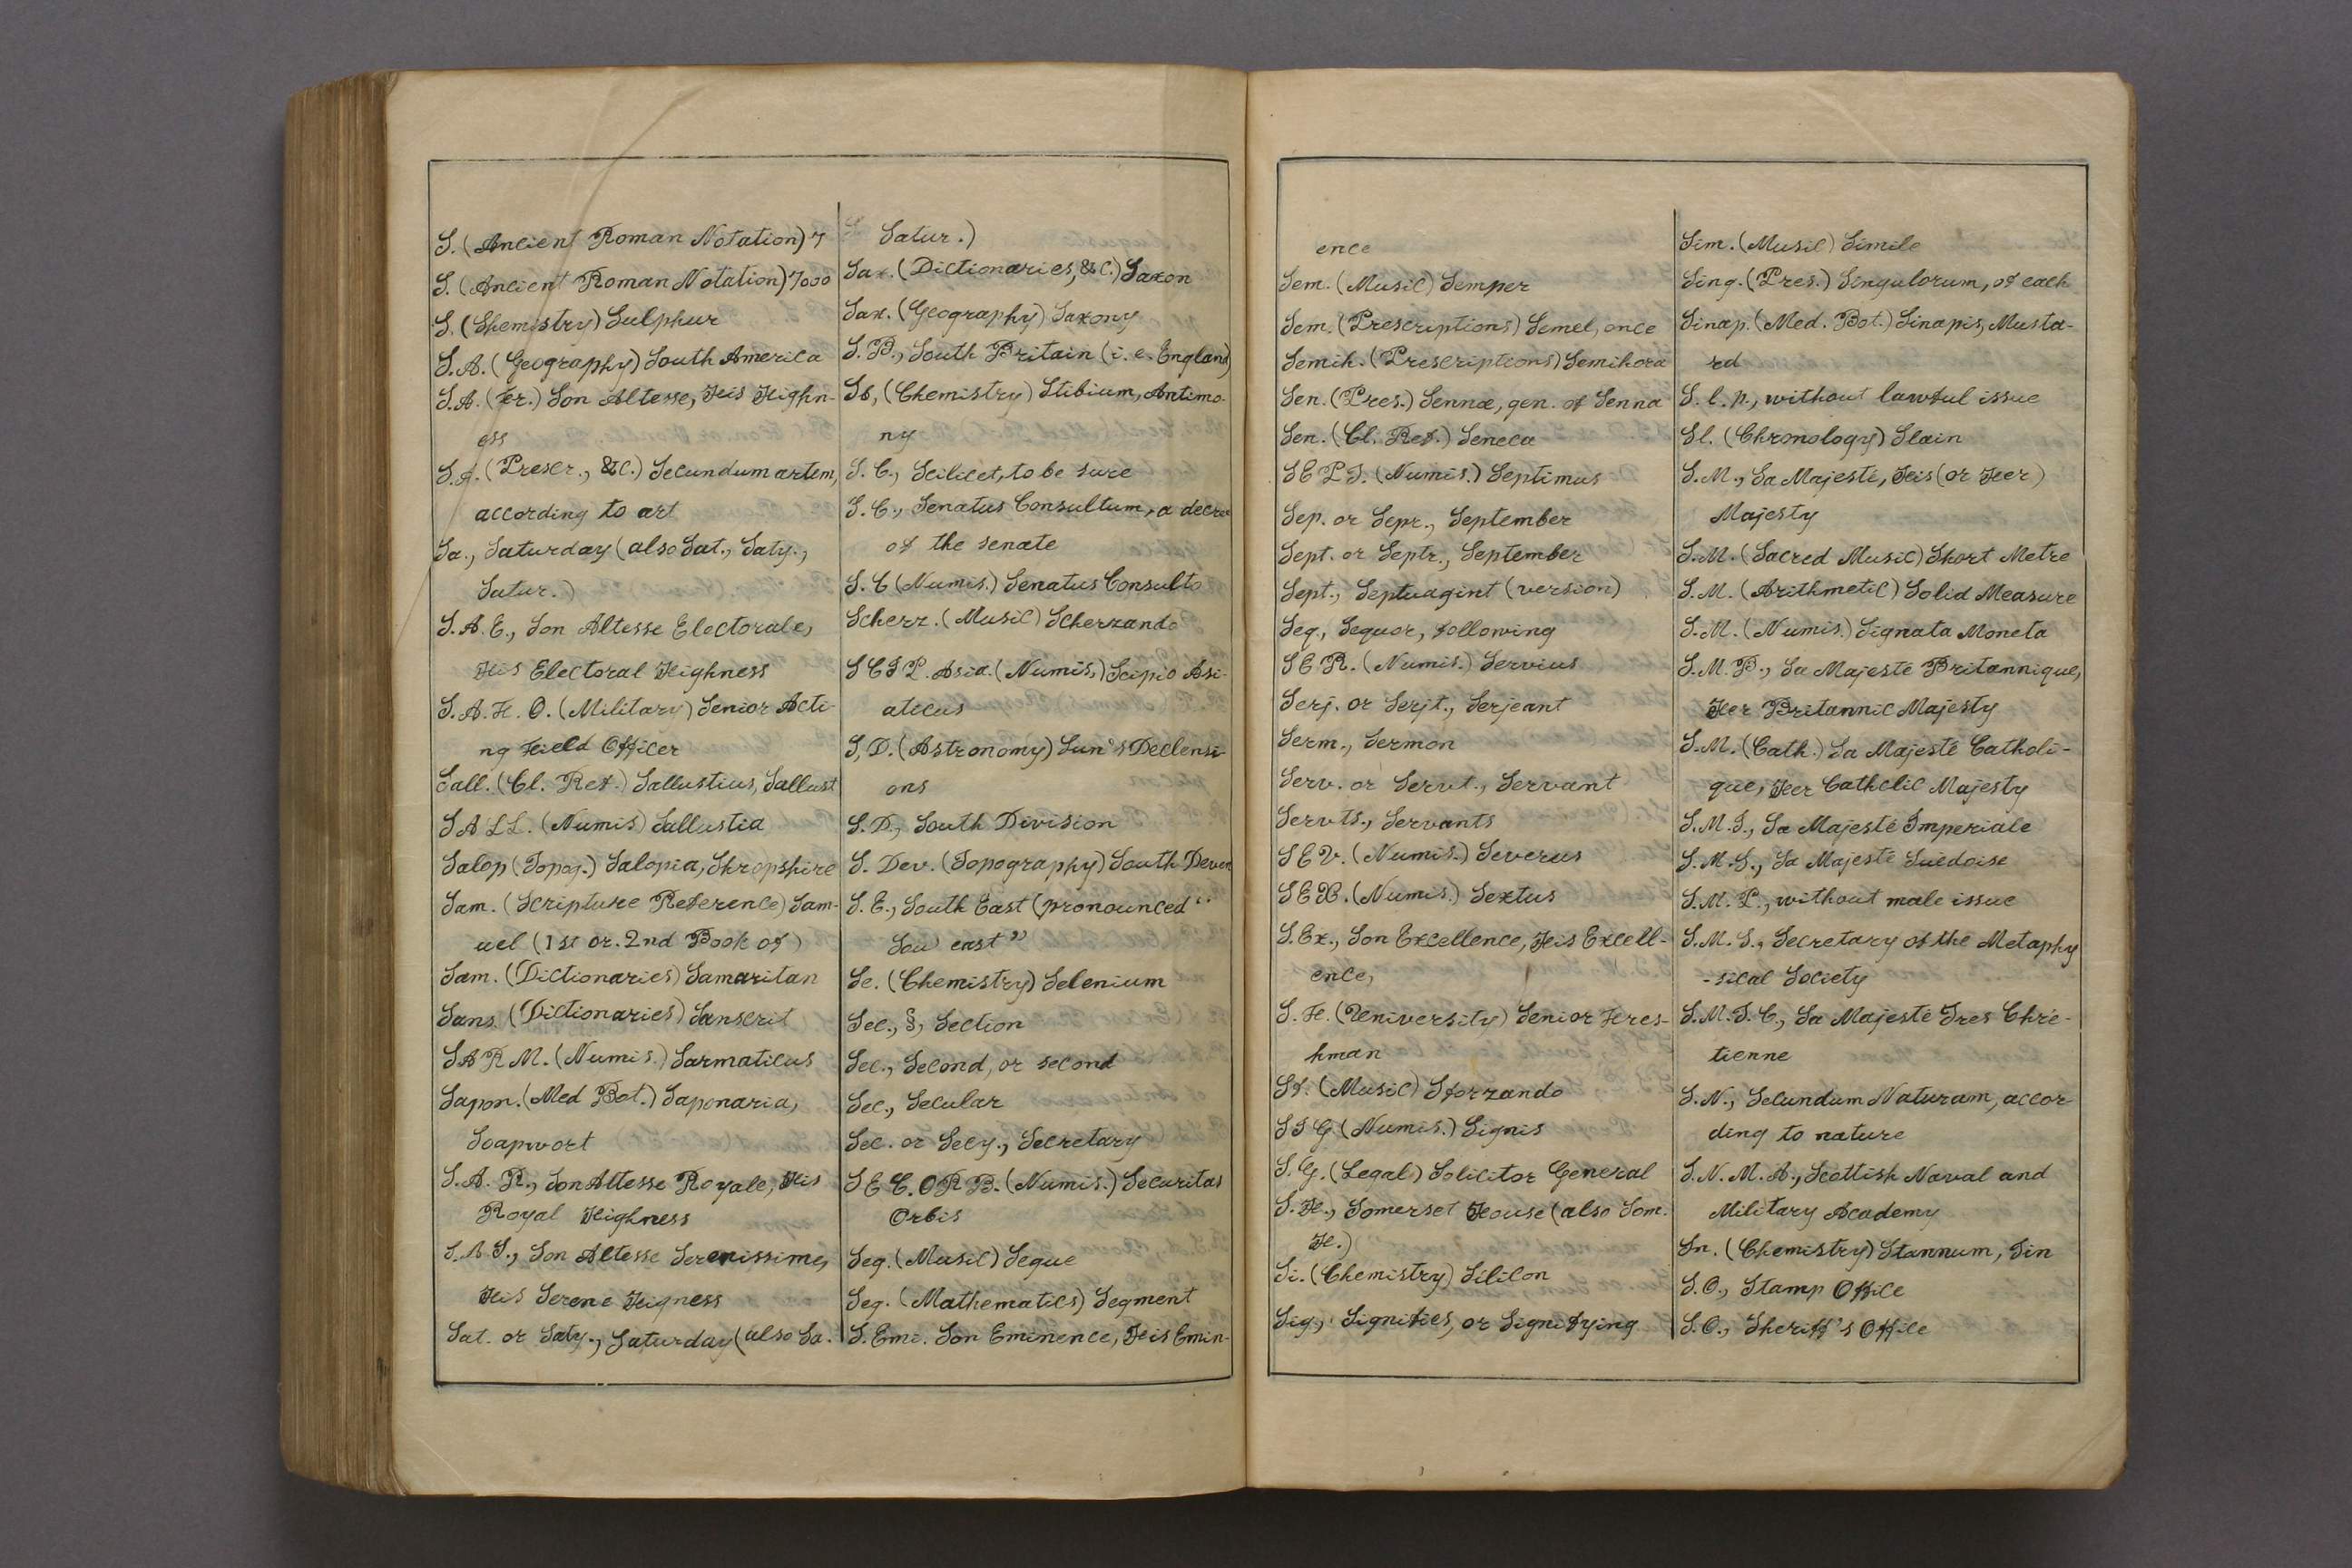 S. (Ancient Roman Notation) 7
S. (Ancient Roman Notation) 7000
S. (Chemistry) Sulphur
S.A. (Geography) South America
S.A. (Fr.) Son Altesse, His Highn-
ess
S.A. (Prescr., &c.) Secundum artem,
according to art
Sa., Saturday (also Sat., Saty.,
Satur.)
S.A.E., Son Altesse Electorale,
His Electoral Highness
S.A.F.O. (Military) Senior Acti-
ng Field Officer
Sall. (Cl. Ref.) Sallustius, Sallust
SALL. (Numis) Sallustia
Salop (Topog.) Salopia, Shropshire
Sam. (Scripture Reference) Sam-
uel (1st or. 2nd Book of)
Sam. (Dictionaries) Samaritan
Sans. (Dictionaries) Sanscrit
SARM. (Numis.) Sarmaticus
Sapon. (Med Bot.) Saponaria,
Soapwort
S.A.R., Son Altesse Royale, His
Royal Highness
S.A.S., Son Altesse Serenissime,
His Serene Higness
Sat. or Saty., Saturday (also Sa.
Satur.)
Sax. (Dictionaries, &c.) Saxon
Sax. (Geography) Saxony
S.B., South Britain (i.e. England)
Sb, (Chemistry) Stibium, Antimo-
ny
S.C., Scilicet, to be sure
S.C., Senatus Consultum, a decree
of the senate
S.C (Numis.) Senatus Consulto
Scherz. (Music) Scherzando
SCIP. Asia. (Numis,) Scipio Asi-
aticus
S,D. (Astronomy) Sun's Declensi-
ons
S.D., South Division
S. Dev. (Topography) South Devon
S.E., South East (pronounced "
Sou' east"
Se. (Chemistry) Selenium
Sec., §, Section
Sec., Second, or second
Sec., Secular
Sec. or Secy., Secretary
SEC. ORB. (Numis.) Securitas
Orbis
Seg. (Music) Segue
Seg. (Mathematics) Segment
S. Emi. Son Eminence, His Emin-
ence
Sem. (Music) Semper
Sem. (Prescriptions) Semel, once
Semih. (Prescriptions) Semihora
Sen. (Pres.) Sennæ, gen. of Senna
Sen. (Cl. Ref.) Seneca
SEPT. (Numis.) Septimus
Sep. or Sepr., September
Sept. or Septr., September
Sept., Septuagint (version)
Seq., Sequor, following
SER. (Numis.) Servius
Serj. or Serjt., Serjeant
Serm., Sermon
Serv. or Servt., Servant
Servts., Servants
SEV. (Numis.) Severus
SEX. (Numis.) Sextus
S.Ex., Son Excellence, His Excell-
ence,
S.F. (University) Senior Fres-
hman
Sf. (Music) Sforzando
SIG (Numis.) Signis
S.G. (Legal) Solicitor General
S.H., Somerset House (also Som.
H.)
Si. (Chemistry) Silicon
Sig., Signifies, or Signifying
Sim. (Music) Simile
Sing. (Pres.) Singulorum, of each
Sinap. (Med. Bot.) Sinapis, Musta-
rd
S.l.p., without lawful issue
Sl. (Chronology) Slain
S.M., Sa Majesté, His (or Her)
Majesty
S.M. (Sacred Music) Short Metre
S.M. (Arithmetic) Solid Measure
S.M. (Numis.) Signata Moneta
S.M.B., Sa Majesté Britannique,
Her Britannic Majesty
S.M. (Cath.) Sa Majesté Catholi-
que, Her Catholic Majesty
S.M.I., Sa Majesté Imperiale
S.M.S., Sa Majesté Suédoise
S.M.P., without male issue
S.M.S., Secretary of the Metaphy
-sical Society
S.M.T.C., Sa Majesté Tres Chré-
tienne
S.N., Secundum Naturam, accor-
ding to nature
S.N.M.A., Scottish Naval and
Military Academy
Sn. (Chemistry) Stannum, Tin
S.O., Stamp Office
S.O., Sheriff's Office